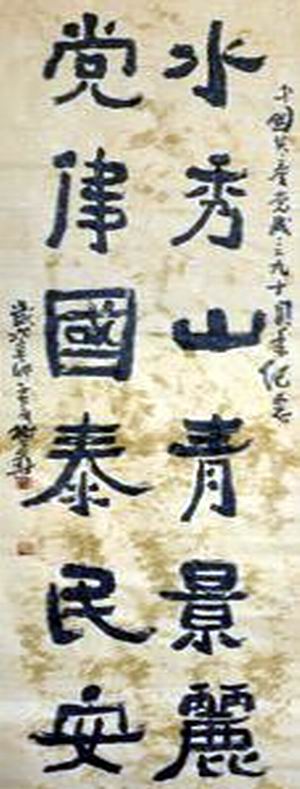 中國共產黨成立九十周年纪念
水秀山青景麗
党伟國泰民安